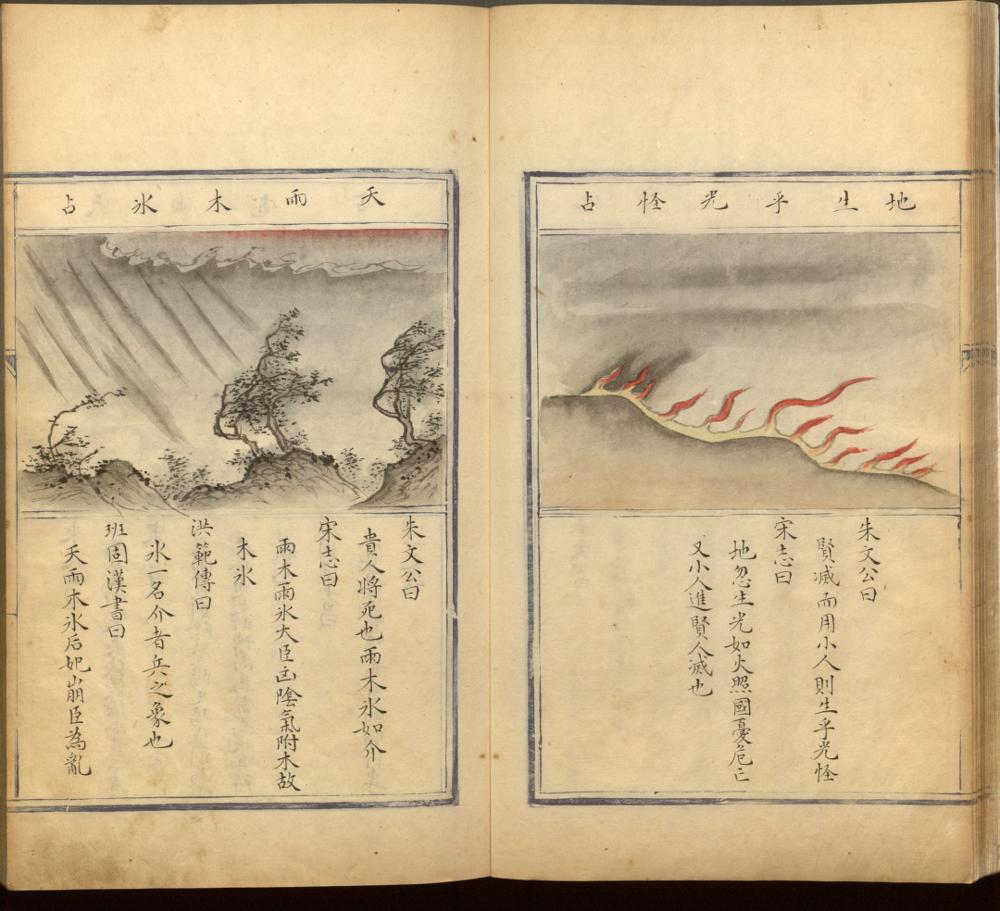 地生乎光怪占
朱文公曰
賢滅而用小人則生乎光怪
宋志曰
地忽生光如火照國憂危亡
又小人進賢人滅也
天雨木氷占
朱文公曰
貴人將死也雨木氷如介
宋志曰
雨木雨氷大臣凶陰氣附木故
木氷
洪範傳曰
氷一名介者兵之象也
班固漢書曰
天雨木氷后妃崩臣為亂